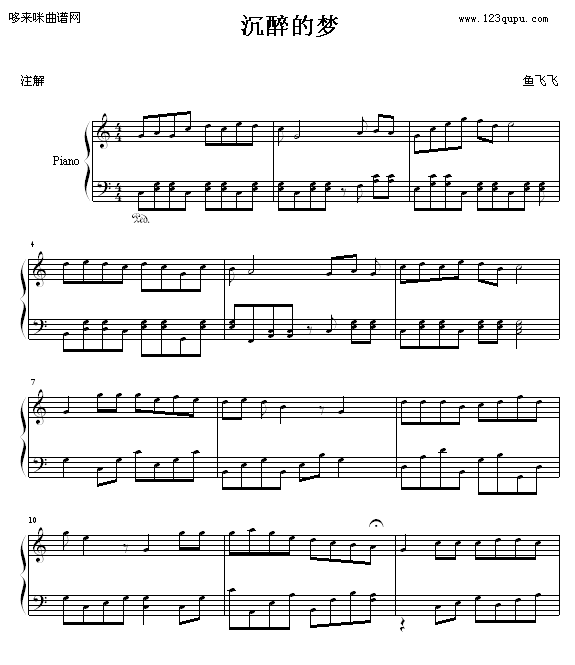 哆来咪曲谱网
沉醉的梦
www.123qupu.com
注解
鱼飞飞
Piano
4
7
10